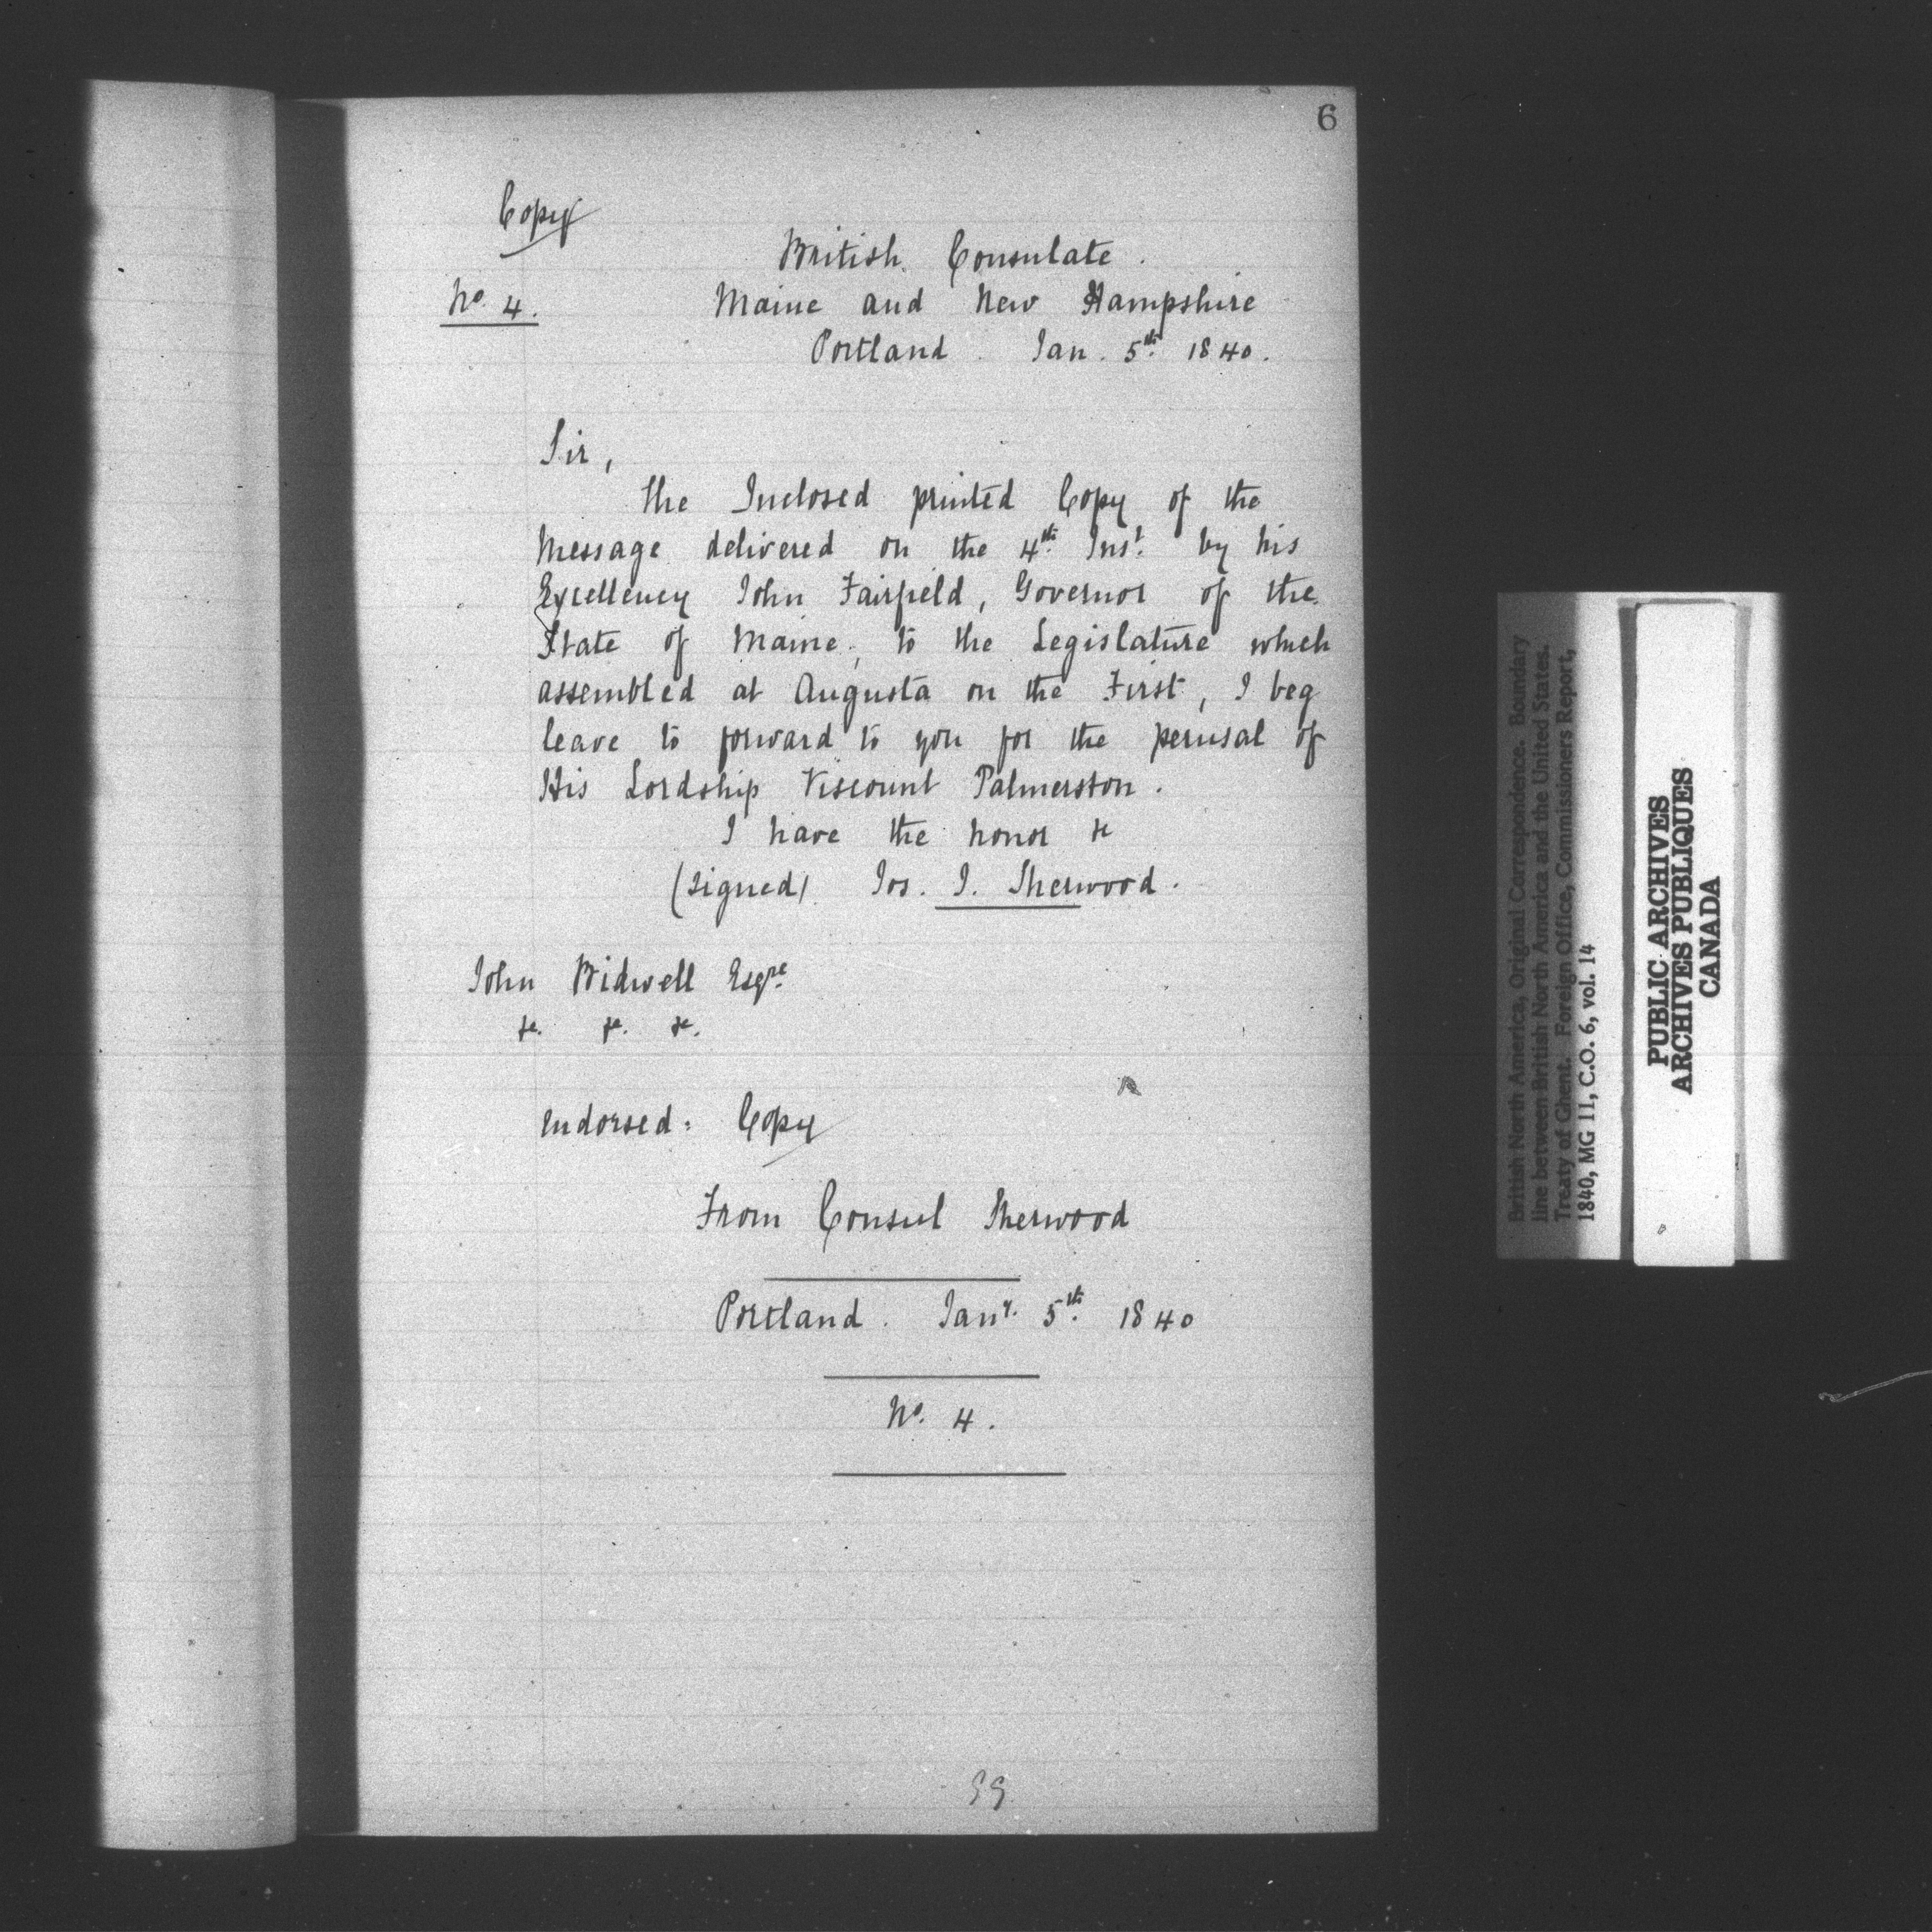 6
Copy
British Consulate.
No. 4.
Maine and New Hampshire
Portland. Jan. 5th. 1840.
Sir,
The Inclosed printed Copy of the
Message delivered on the 4th. Inst. by his
Excellency John Fairfield, Governor of the
State of Maine, to the Legislature which
assembled at Augusta on the First, I beg
leave to forward to you for the perusal of
His Lordship Viscount Palmerston.
I have the honor &c
(signed). Jos. T. Sherwood.
John Bidwell Esqre.
&c. &c. &c.
Endorsed: Copy
From Consul Sherwood
Portland. Jany. 5th. 1840
No. 4.
British North America, Original Correspondence. Boundary
line between British North America and the United States.
Treaty of Ghent. Foreign Office, Commissioners Report,
1840, MG 11, C.O. 6, vol. 14
PUBLIC ARCHIVES
ARCHIVES PUBLIQUES
CANADA